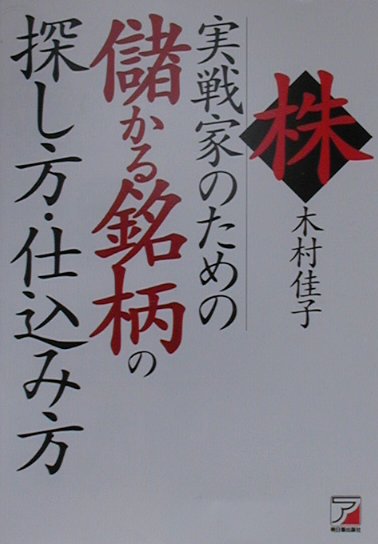 株
木村佳子
実戦家のための
儲かる銘柄の
探し方・仕込み方
ア
明日香出版社